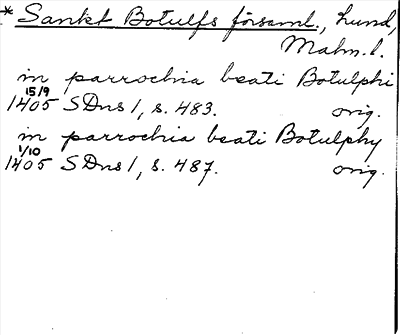 * Sankt Botulfs församl., Lund,
Malm. l.
in parrochia beati Botulphi
15/9
1405 SDns 1, s. 483. orig.
in parrochia beati Botulphy
1/10
1405 SDns 1, s. 487. orig.